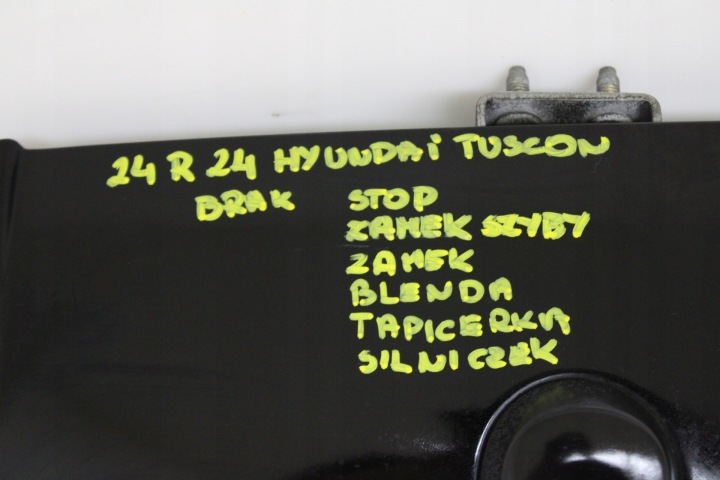 24 R 24 HYUNDAi TUSCON
BRAK STOP
ZAMEK SZYBY
ZAMEK
BLENDA
TAPICERKA
SILNICZEK